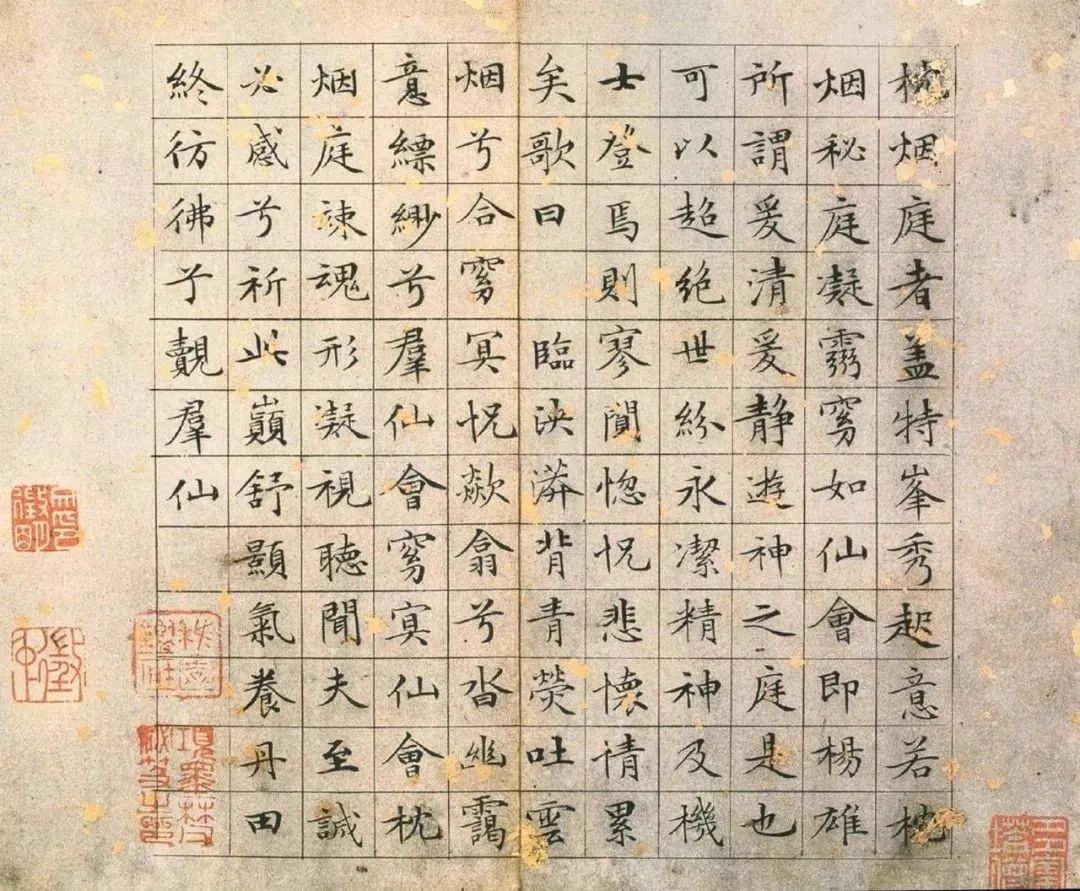 枕烟庭者盖特峯秀起意若枕
烟秘庭凝靈窅如仙會即楊雄
所謂爰清爰静遊神之庭是也
可以超絶世紛永潔精神及機
士登焉則寥闃惚怳悲懷情累
矣歌曰 臨泱漭背青熒吐雲
烟兮合窅冥怳歘翕兮沓幽靄
意縹緲兮羣仙會窅冥仙會枕
烟庭竦魂形凝視聽聞夫至誠
必感兮祈此巔舒顥氣養丹田
終彷彿兮覿羣仙